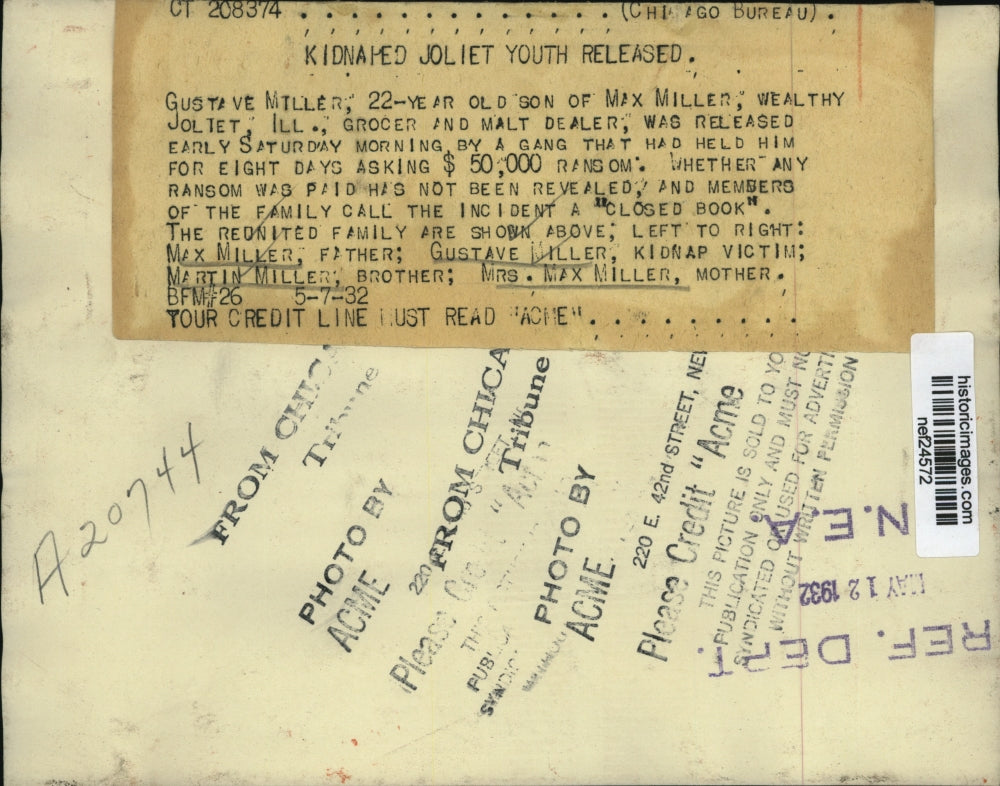 CT 208374 . . . . . . . . . . . . (CHICAGO BUREAU) .
KIDNAPED JOLIET YOUTH RELEASED.
GUSTAVE MILLER, 22-YEAR OLD SON OF MAX MILLER, WEALTHY
JOLIET, ILL., GROCER AND MALT DEALER, WAS RELEASED
EARLY SATURDAY MORNING BY A GANG THAT HAD HELD HIM
FOR EIGHT DAYS ASKING $ 50,000 RANSOM. WHETHER ANY
RANSOM WAS PAID HAS NOT BEEN REVEALED, AND MEMBERS
OF THE FAMILY CALL THE INCIDENT A "CLOSED BOOK".
THE REUNITED FAMILY ARE SHOWN ABOVE, LEFT TO RIGHT:
MAX MILLER, FATHER; GUSTAVE MILLER, KIDNAP VICTIM;
MARTIN MILLER, BROTHER; MRS. MAX MILLER, MOTHER.
BFM#26 5-7-32
YOUR CREDIT LINE MUST READ "ACME". . . . . . . . . .
A20744
FROM CHICA
Tribune
PHOTO BY
ACME
FROM CHICA
Tribune
220
Please
PUBLICA
SYNDIC
PHOTO BY
ACME.
220 E. 42nd STREET, NEW
Please Credit "Acme
THIS PICTURE IS SOLD TO YO
PUBLICATION ONLY AND MUST NO
SYNDICATED OR USED FOR ADVERTI
WITHOUT WRITTEN PERMISSION
N.E.A.
MAY 12 1932
REF. DEPT.
historicimages.com
nef24572